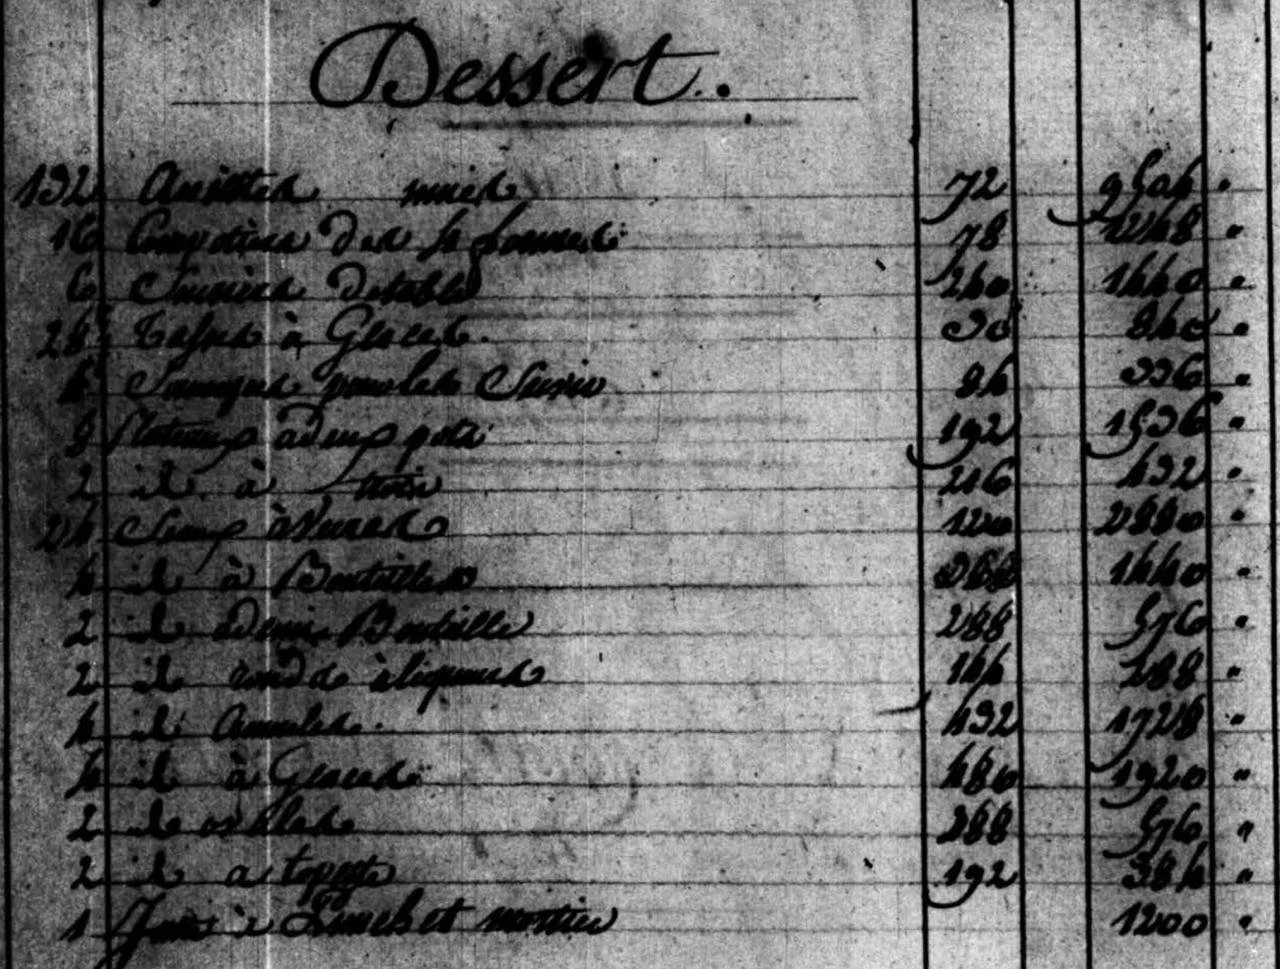 Dessert.
132 assiettes unies 72 9504 "
16 Compotiers des 4 formes 78 1248 "
6 Sucriers de table 240 1440 "
28 Tasses à Glaces. 30 840 "
4 pour les 84 336 "
8 Plateaux à deux pots 192 1536 "
2 id. à trois 216 432 "
24 Seaux à verres 120 2880 "
4 id à Bouteilles 360 1440 "
2 id à demi Bouteille 288 576 "
2 id ronds à liqueurs 144 288 "
4 id 432 1728 "
4 id à Glaces 480 1920 "
2 id ovales 288 576 "
2 id a topette 192 384 "
1 Jatte à Punch et mortier 1200 "